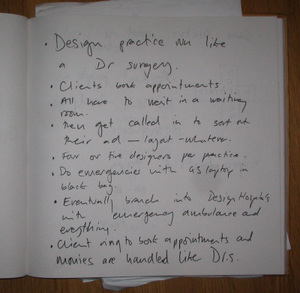 • Design practice run like
a Dr surgery.
• Clients book appointments.
• All have to wait in a waiting
room.
• Then get called in to sort out
their ad — layout - whatever.
• Four or five designers per practice.
• Do emergencies with G3 laptop in
black bag.
• Eventually branch into Design Hospitals
with emergency ambulance and
everything.
• Client ring to book appointments and
are handled like Dr.s.